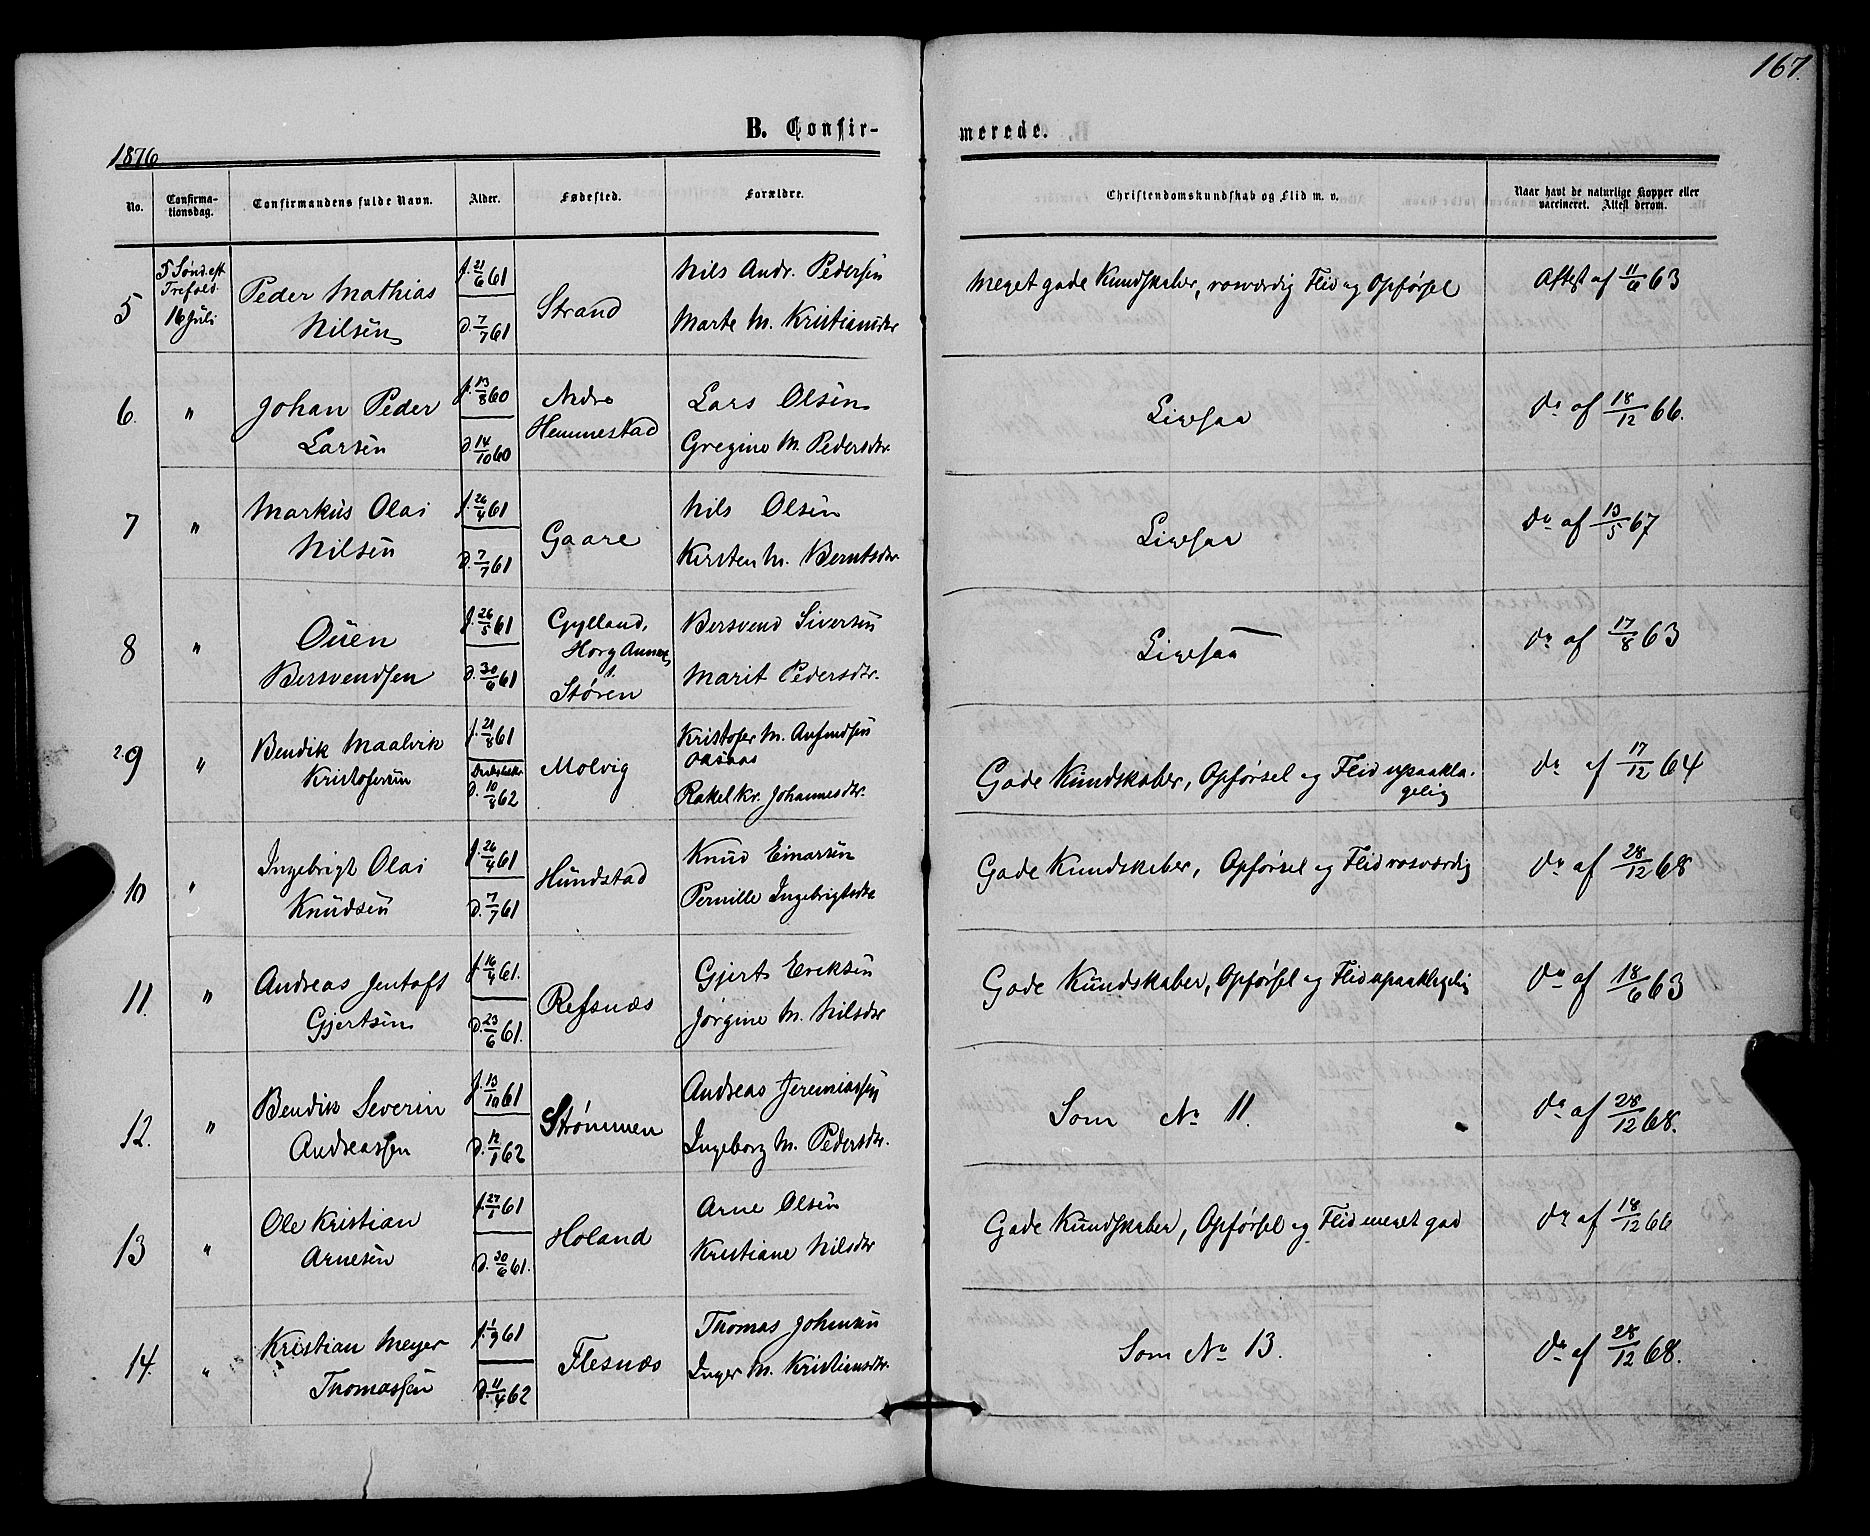 167.
B. Confirmerede.
1876
No.
Confirmationsdag.
Confirmandens fulde Navn.
Alder.
Fødested.
Forældre.
Christendomskundskab og Flid m. v.
Naar havt de naturlige Kopper eller
vaccineret. Attest derom.
5
5 Sønd. eft
Trefold.
16 Juli
Peder Mathias
Nilsen
f. 21/6 61
d. 7/7 61
Strand
Nils Andr. Pedersen
Marte M. Kristiansdtr
Meget gode Kundskaber, rosværdig Flid og Opførsel
Attest af 11/6 63
6.
"
Johan Peder
Larsen
f. 13/8 60
d. 14/10 60
Nedre
Hemmestad
Lars Olsen
Gregine M. Pedersdtr.
Ligesaa
do af 18/12 66.
7
"
Markus Olai
Nilsen
f. 26/4 61
d. 7/7 61
Gaare
Nils Olsen
Kirsten M. Berntsdtr.
Ligesaa
do af 13/5 67
8
"
Ouen
Bersvendsen
f. 26/5 61
d. 30/6 61
Gylland,
Horg Annex
t.
Støren
Bersvend Siversen
Marit Pedersdtr.
Ligesaa
do af 17/8 63
9
"
Bendik Maalvik
Kristofersen
f. 21/8 61
d. 10/8 62
Molvig
Kristofer M. Anfindsen
Rakel Kr. Johannesdtr.
Gode Kundskaber, Opførsel og Flid upaakla-
gelig
do af 17/12 64
10
"
Ingebrigt Olai
Knudsen
f. 26/4 61
d. 7/7 61
Hundstad
Knud Einarsen
Pernille Ingebrigtsdtr
Gode Kundskaber, Opførsel og Flid rosværdig
do af 28/12 68
11.
"
Andreas Jentoft
Gjertsen
f. 16/4 61.
d. 23/6 61.
Refsnæs
Gjert Eriksen
Jørgine M. Nilsdtr
Gode Kundskaber, Opførsel og Flid upaaklagelig
do af 18/6 63
12.
"
Bendik Severin
Andreassen
f. 13/10 61
d. 12/1 62
Strømmen
Andreas Jeremiassen
Ingeborg M. Pedersdtr.
Som No 11.
do af 28/12 68.
13
"
Ole Kristian
Arnesen
f. 27/1 61
d. 30/6 61.
Holand
Arne Olsen
Kristiane Nilsdtr
Gode Kundskaber, Opførsel og Flid meget god
do af 18/12 66
14.
"
Kristian Meyer
Thomassen
f. 1/9 61
d. 11/4 62
Flesnæs
Thomas Johnsen
Inger M. Kristiansdtr.
Som No 13.
do af 28/12 68.